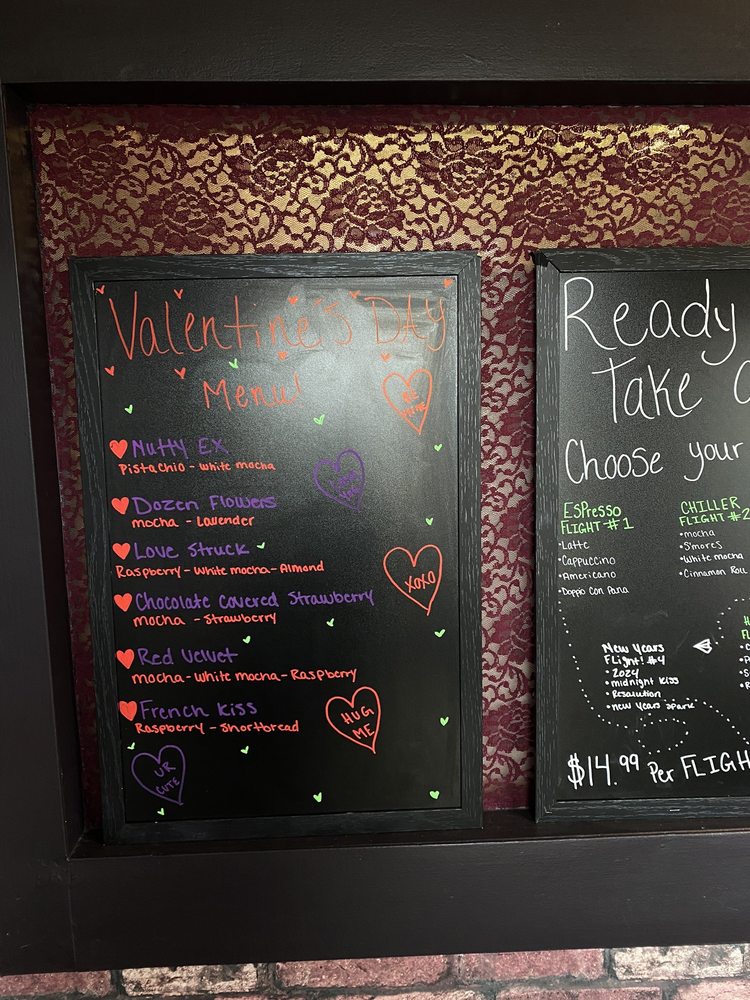 Valentine's DAY
Menu!
BE MINE
Nutty EX
Pistachio - white mocha
Dozen Flowers
mocha - Lavender
Love Struck
Raspberry - white mocha - Almond
XOXO
Chocolate Covered Strawberry
mocha - Strawberry
Red Velvet
mocha - White mocha - Raspberry
French Kiss
Raspberry - Shortbread
HUG
ME
UR
CUTE
Ready
Take
Choose your
ESPresso
FLIGHT #1
•Latte
•Cappuccino
•Americano
•Doppio Con Pana
CHILLER
FLIGHT #2
•mocha
•S'mores
•White mocha
•Cinnamon Roll
New Years
FLight! #4
• 2024
• midnight Kiss
• Resolution
• new Years spark
$14.99 Per FLIGH